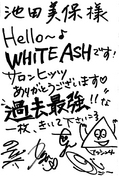 池田美保様
Hello〜♪
WHITE ASHです!
サロンヒッツ
ありがとうございます♡
"過去最強!!"な
一枚、きいてくださいーう